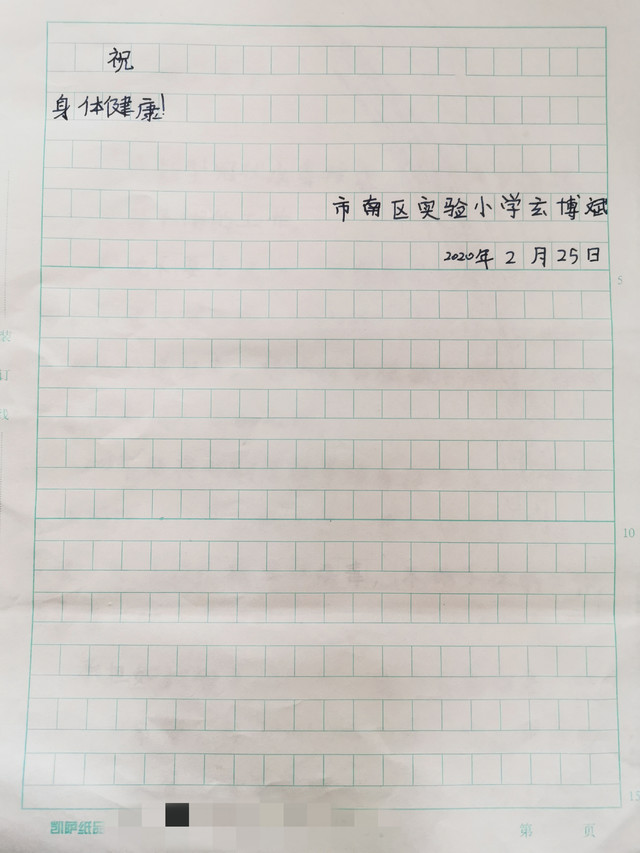 祝
身体健康!
市南区实验小学玄博斌
2020年2月25日
5
装
订
线
10
15
第 页